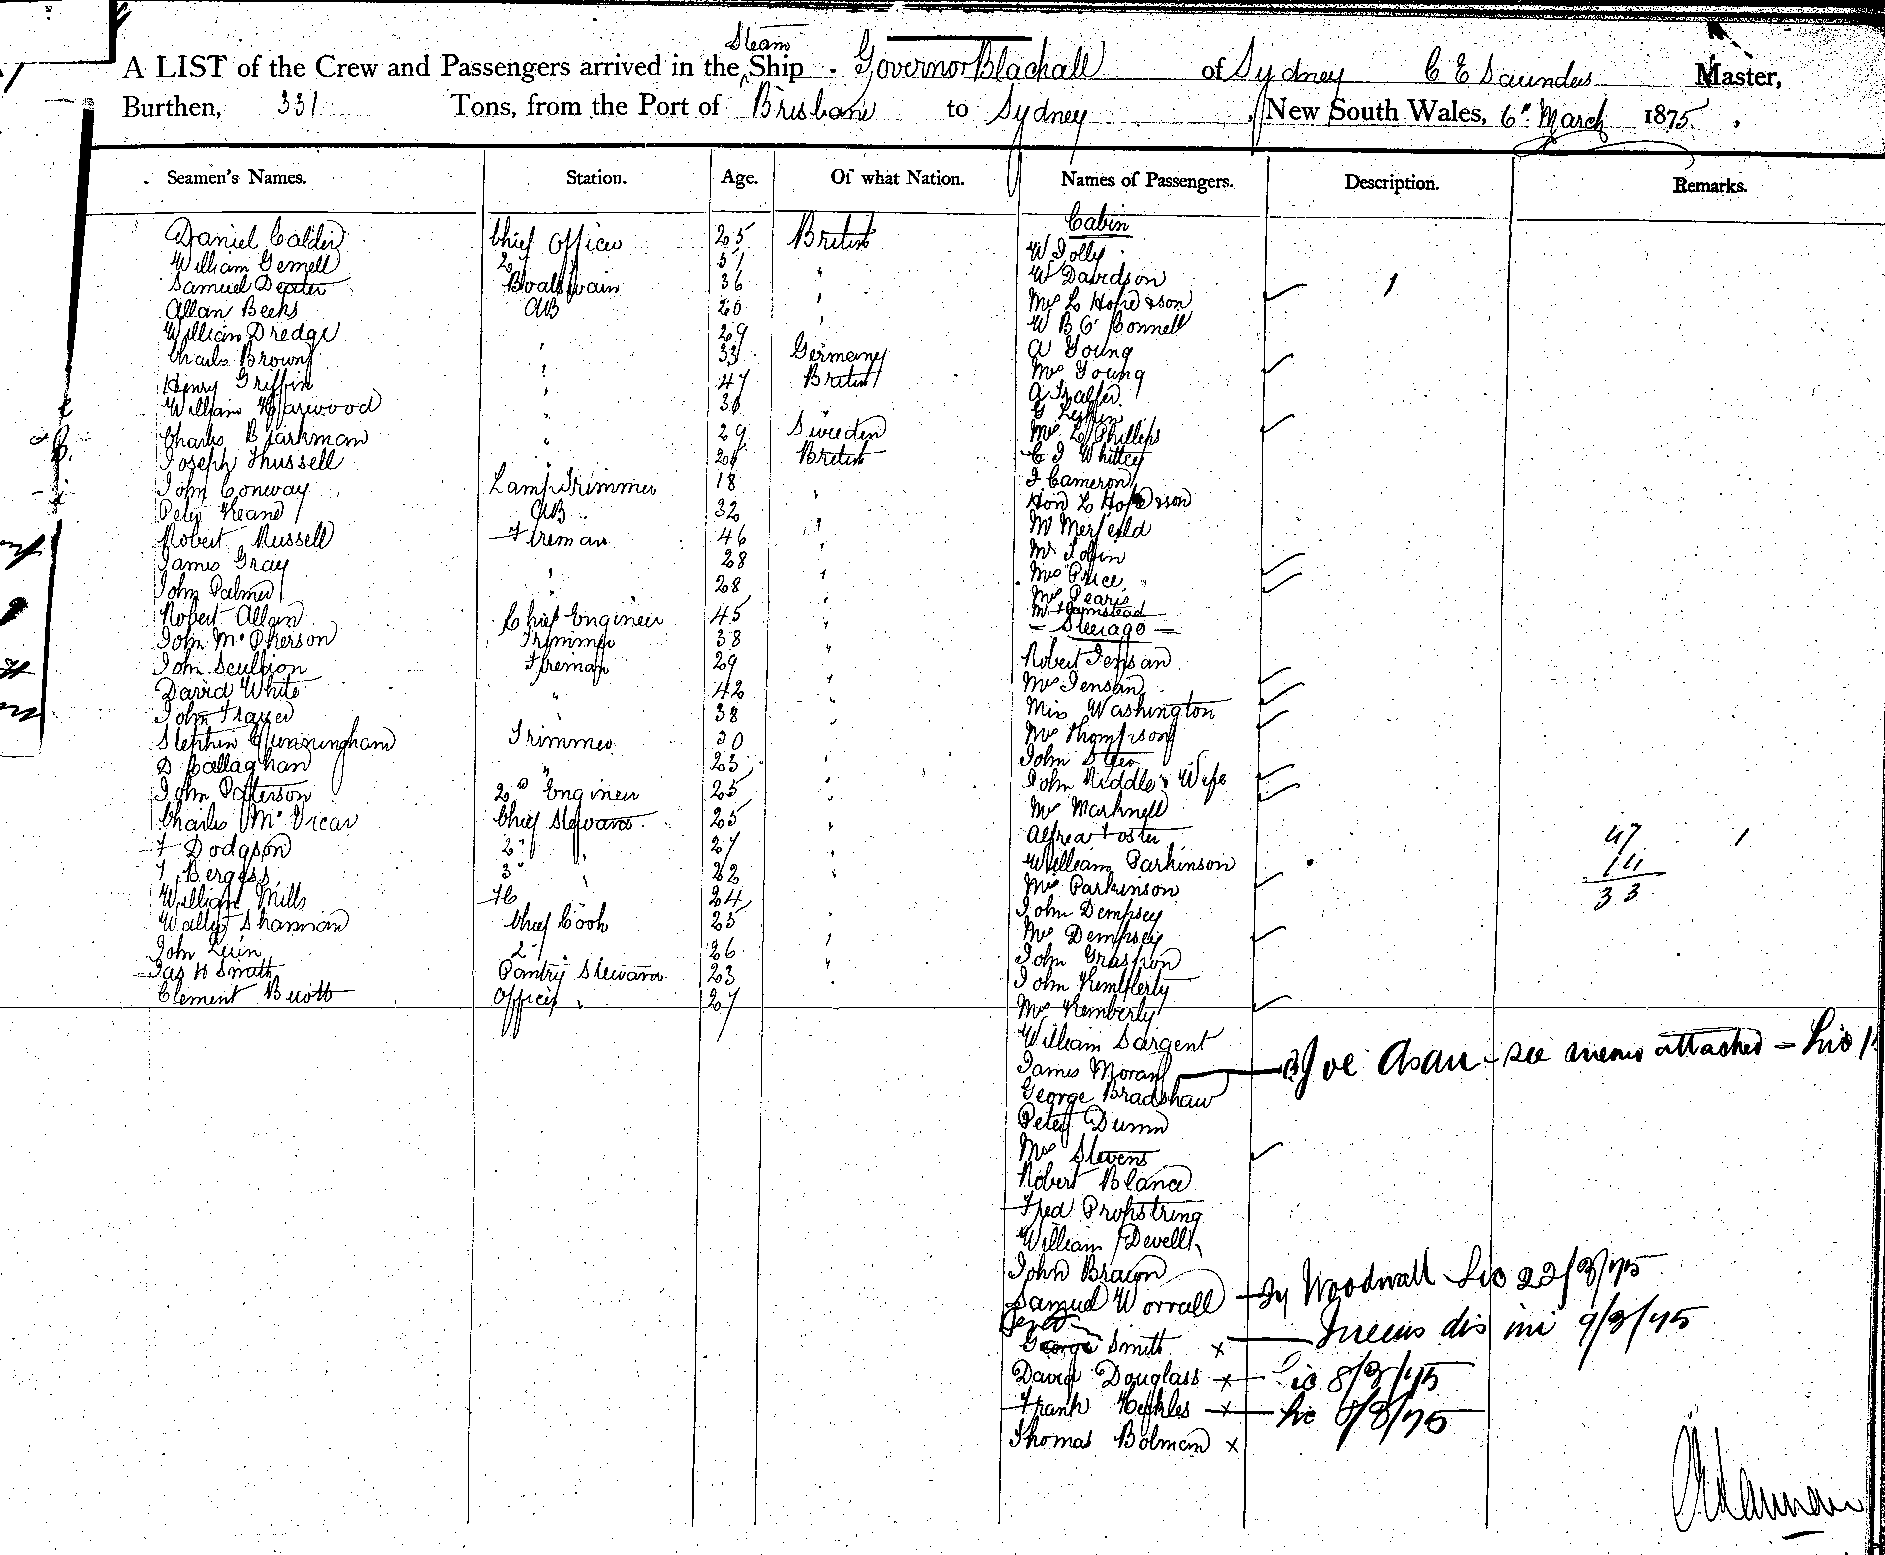 A LIST of the Crew and Passengers arrived in the Steam Ship Governor Blackall of Sydney C E Saunders Master,
Burthen, 331 Tons, from the Port of Brisbane to Sydney New South Wales, 6th March 1875
Seamen's Names. Station. Age. Of what Nation. Names of Passengers. Description. Remarks.
Cabin
Daniel Calder Chief Officer 25 British W Jolly
William Gemell 2 W Davidson
Samuel Dexter Boatswain 36 " Mrs L Hope & son 1
Allan Beeks AB 20 " W B O'Connell
William Dredge 29 A Young
Charles Brown " 33 Germany Mrs Young
Henry Griffin " 47 British
William Harwood "
Charles Bjarkman " 29 Sweden Mrs L Phillips
Joseph Thussell British C J Whittey
John Conway Lamp Trimmer 18 " J Cameron
Peter Keane AB 32 Hon L Hope & son
Robert Russell Fireman 46 " Mr Merfeild
James Gray " 28
John Palmer " 28 " Mrs Price
Robert Allan Chief Engineer 45 " Mrs Pearis
Mr Hamstead
Steerage
John McPherson Trimmer 38 "
John Scullion Fireman 29 " Robert Jensan
David White " 42 " Mrs Jensan
John Frazer 38 " Miss Washington
Stephen Cunningham Trimmer 30 " Mrs Thompson
D Callaghan " 23 " John
John Patterson 2nd Engineer 25 " John Riddle & Wife
Charles McVicar Chief Steward 25 " Mr Marknell
F Dodgson 2nd " 27 " Alfred Foster 47 1
T Bergess 3rd " 22 " William Parkinson 14
William Mills 24 Mrs Parkinson 33
Walter Sharman Chief Cook 25 " John Dempsey
John 2nd 26 " Mrs Dempsey
Jas H Smith Pantry Steward 23 " John Graspon
Clement Buott Officer " 27 John Kemberly
Mrs Kemberly
William Sargent
James Moran Joe Asau - see memo attached -
George Bradshaw
Peter Dunn
Mrs Stevens
Robert Bland
Fred Propstring
William Dewell
John Brown
Samuel Worrall Woodwall 22/3/75
George Smith x 9/3/75
David Douglass x 8/3/75
Frank x 8/3/75
Thomas Bolman x